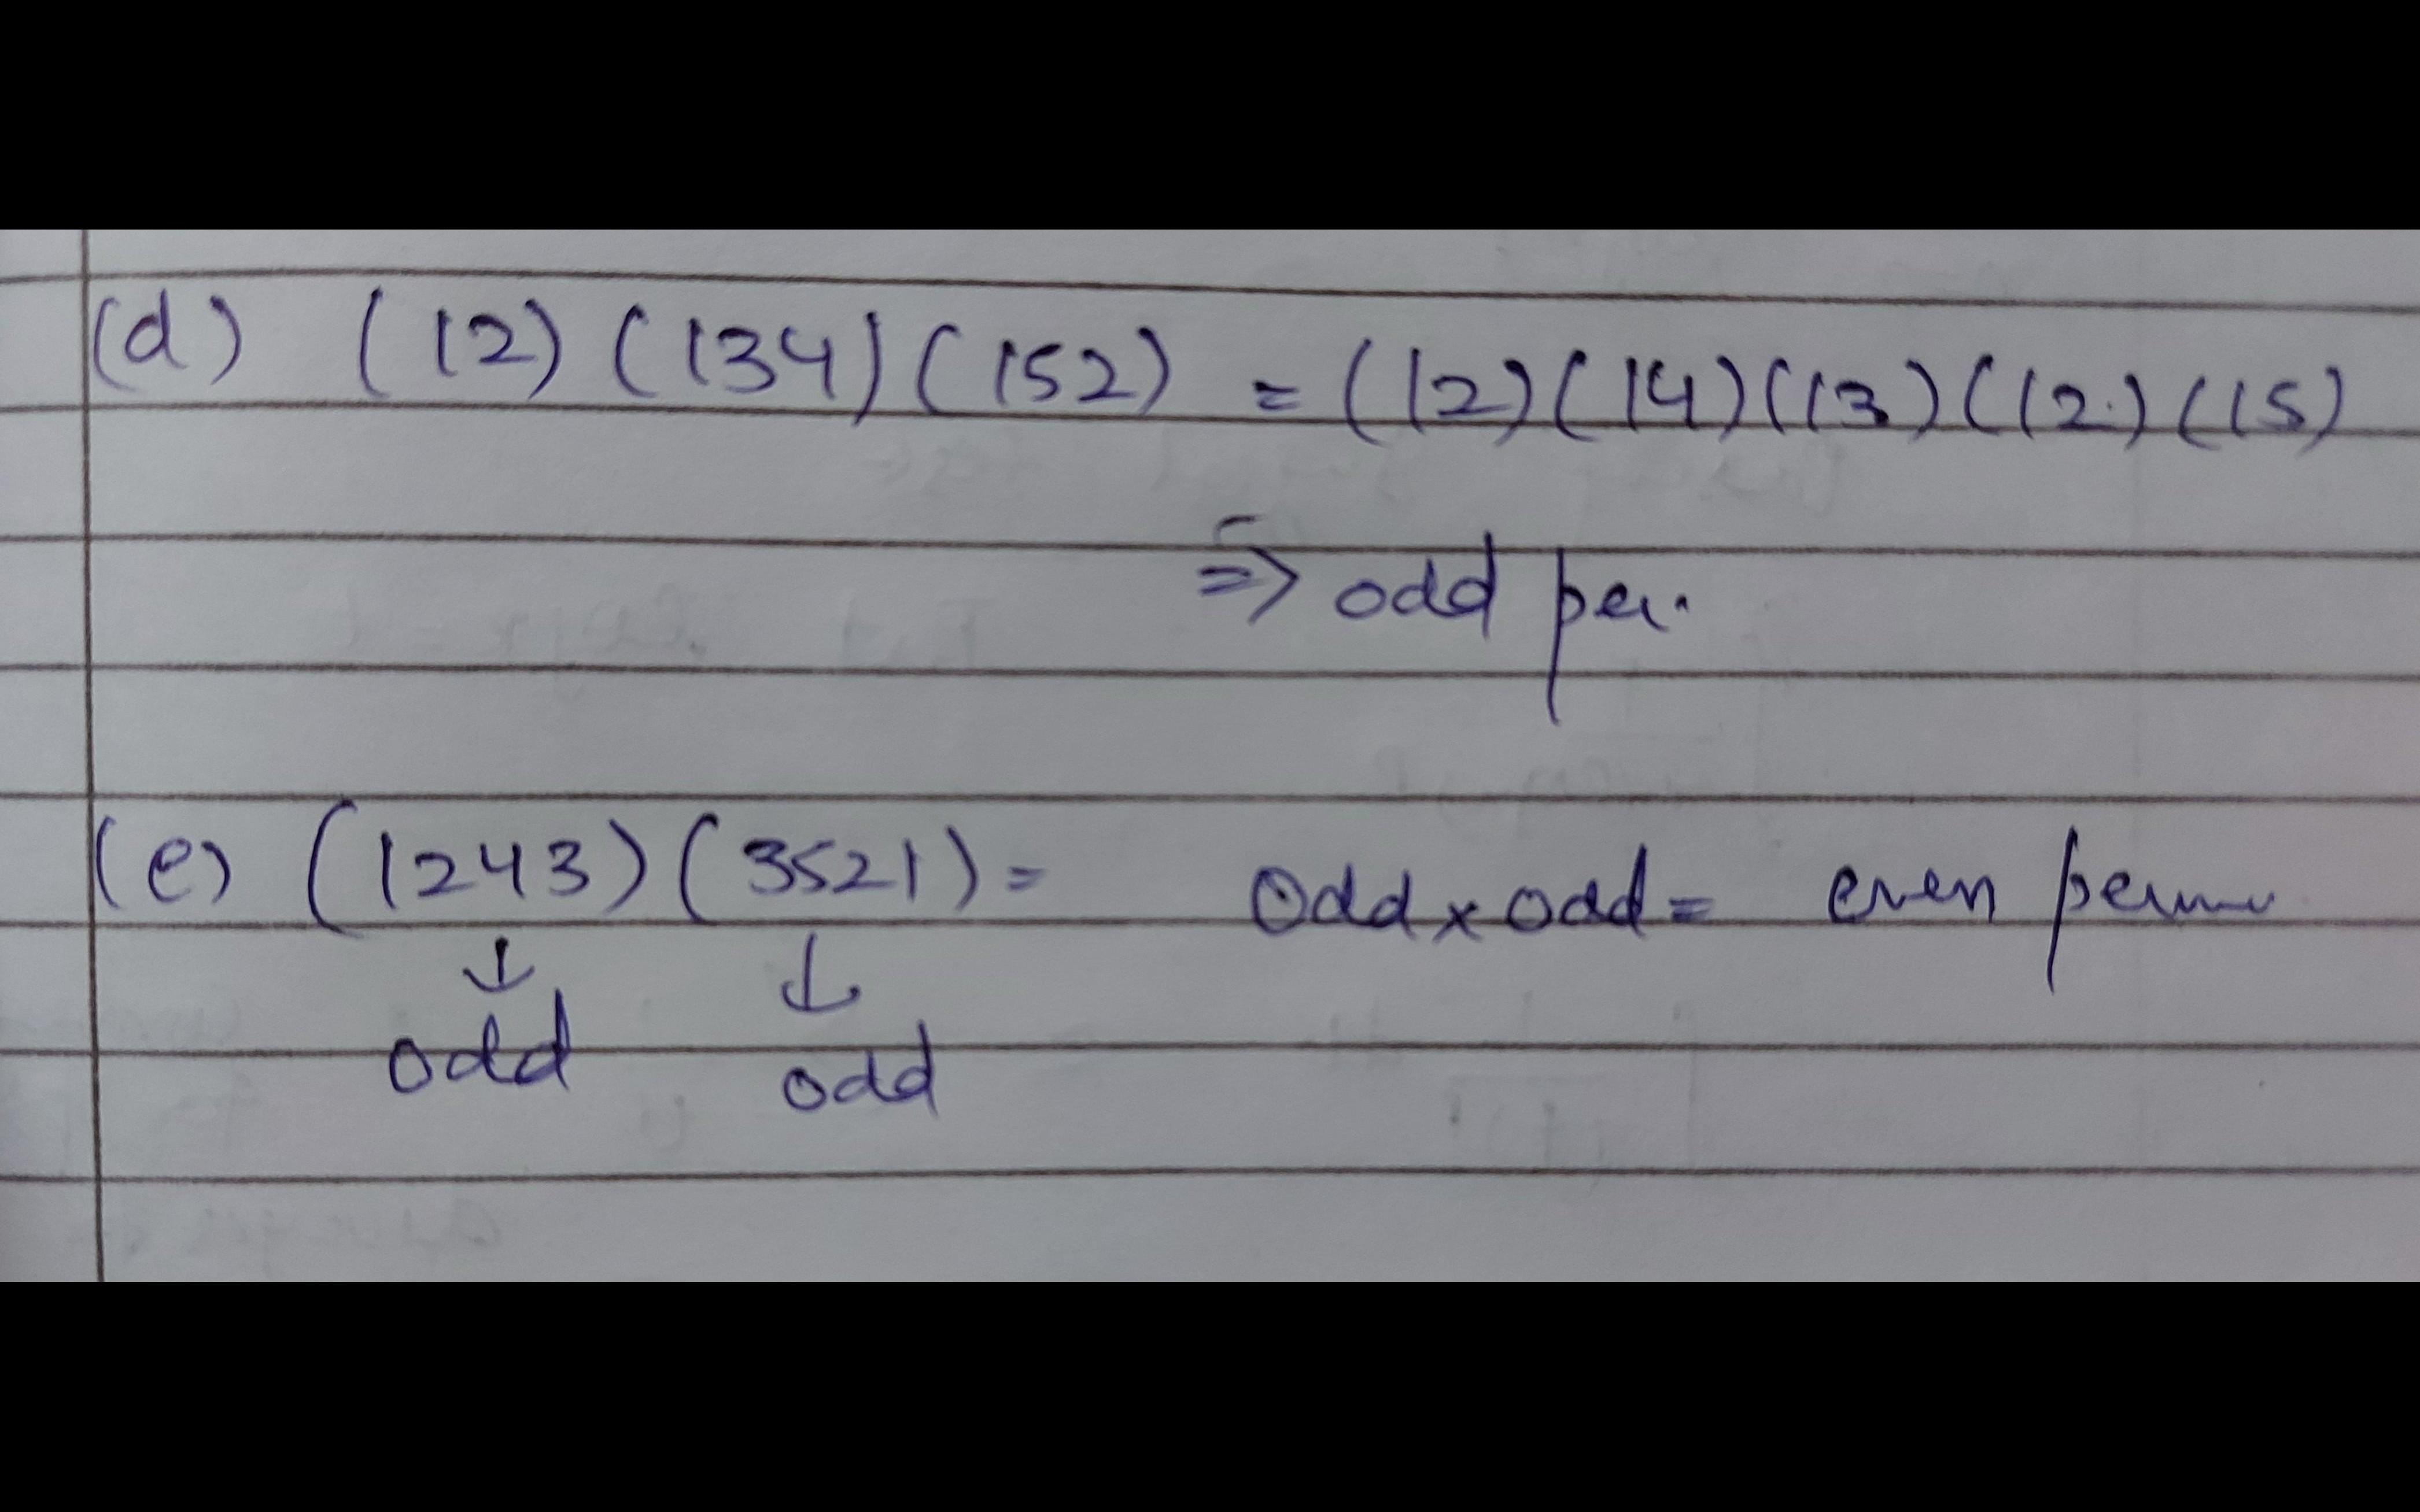 (d) (12) (134) (152) = (12) (14) (13) (12) (15)
=> odd per.
(e) (1243) (3521) = odd x odd = even perm
↓ ↓
odd odd